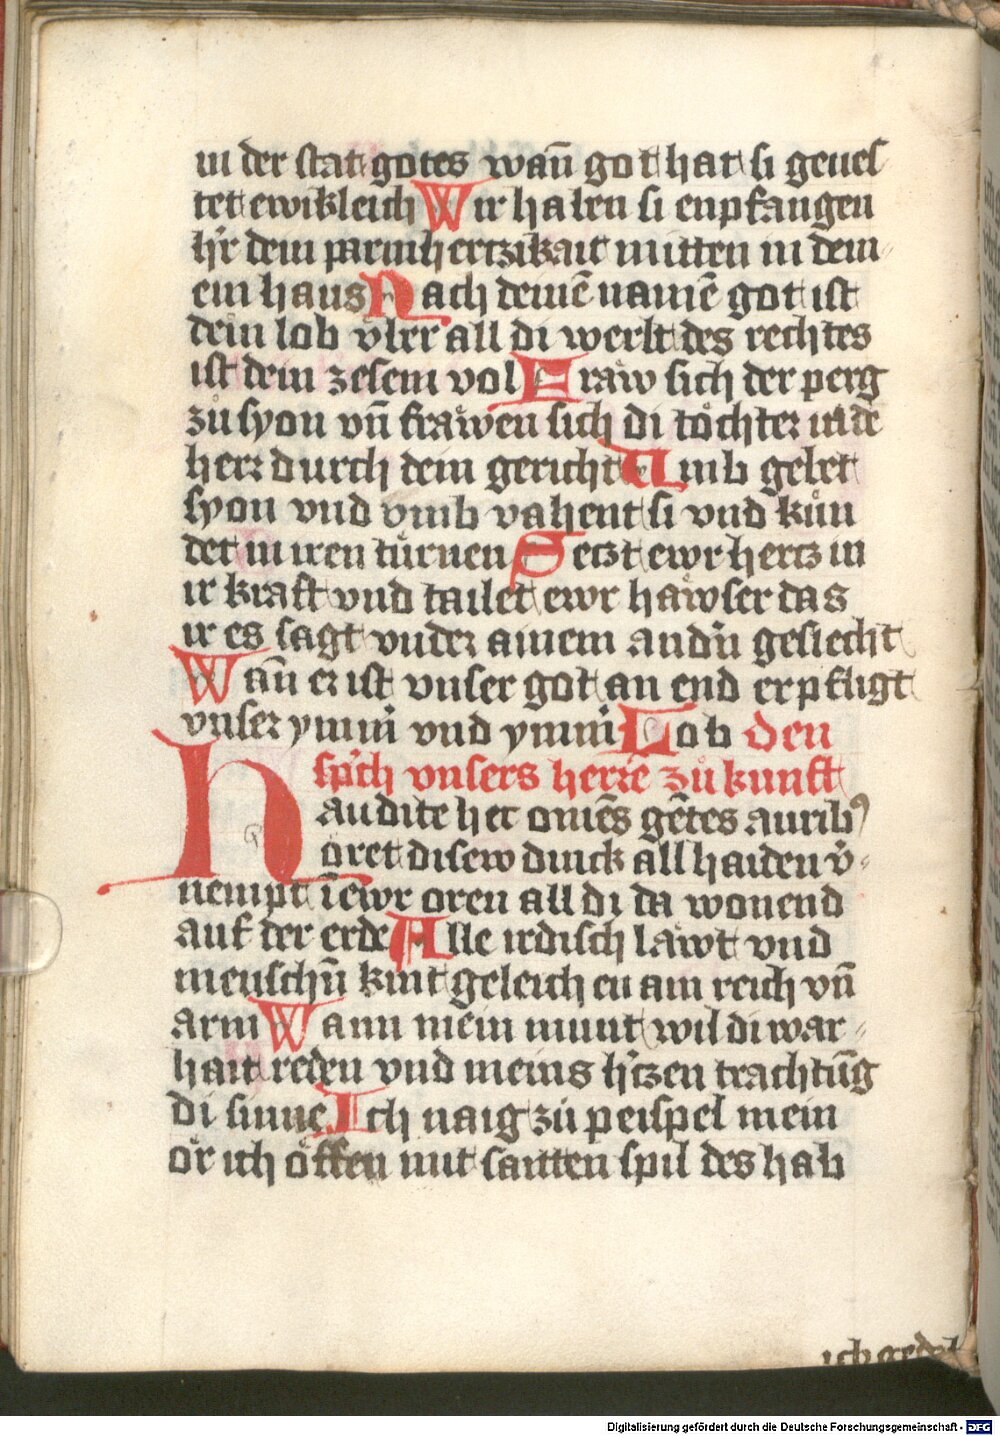 in der stat gotes wañ got hat si geues
tet ewikleich Wir haben si enpfangen
h'r dein parmhertzikait mitten in dein
ein haus Nach deinē namē got ist
dein lob vber all di werlt des rechtes
ist dein zesem vol Fraͤw sich der perg
zů syon vñ fraͤwen sich di toͤchter iude
herr durch dein gericht Umb gebet
syon vnd vmb vahent si vnd kuͤn
det in iren tuͤrnen Setzt ewr hertz in
ir kraft vnd tailet ewr haͤwser das
ir es sagt vnder ainem andn̄ geslecht
Wañ er ist vnser got an end er pfligt
vnser ymm' vnd ymm' Lob den
sp'ch vnsers herrē zů kunft
audite hec om̄es gētes aurib9
Horet disew dinck all haiden v'
nempt ī ewr oren all di da wonend
auf der erde Alle irdisch laͤwt vnd
menschn̄ kint geleich en am reich vñ
arm Wann mein munt wil di war
hait reden vnd meins h'tzen trachtūg
di sinne Ich naig zů peispel mein
oͤr ich oͤffen mit saitten spil des hab